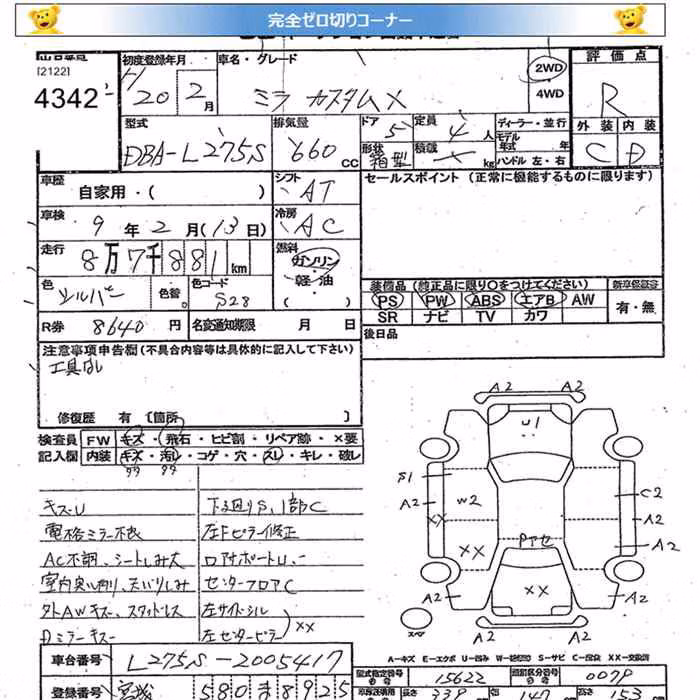 完全ゼロ切りコーナー
[2122]
4342
初度登録年月
H 20 2月
車名・グレード
ミラ カスタムX
2WD
4WD
評価点
R
外装 内装
C D
型式
DBA-L275S
排気量
660cc
ドア
5
定員
4人
形状
箱型
積載
kg
ディーラー・並行
モデル
年式 年
ハンドル 左・右
車歴
自家用・( )
シフト
AT
セールスポイント (正常に機能するものに限ります)
車検
9年2月(13日)
冷房
AC
走行
8万7千881km
燃料
ガソリン
軽・油
( )
色
シルバー
色替
色コード
S28
装備品(純正品に限り○をつけてください)
PS PW ABS エアB AW
SR ナビ TV カワ
新車保証書
有・無
R券 8640円
名変通知期限 月 日
後日品
注意事項申告欄(不具合内容等は具体的に記入して下さい)
工具なし
修復歴 有 〔箇所 〕
検査員
記入欄
FW キズ・飛石・ヒビ割・リペア跡・×要
内装 キズ・汚レ・コゲ・穴・スレ・キレ・破レ
キズU
電格ミラー不良
AC不調、シートしみ大
外AWキズ、スタッドレス
Dミラーキズー
下廻りS、1部C
左Fピラー修正
ロアサポートU
センターフロアC
左サイドシル
左センターピラー
××
A2 A2
U1
S1
A2
W2
C2
A2
××
××
A2
Pアセ
××
A2 A2
スペア
A2 A2
A-キズ E-エクボ U-凹み S-サビ C-腐食 XX-交換済
車台番号 L275S-2005417
型式指定番号
15622
類別区分番号
0079
登録番号 宮城 580 ま 8925
長さ
339
幅
147
高さ